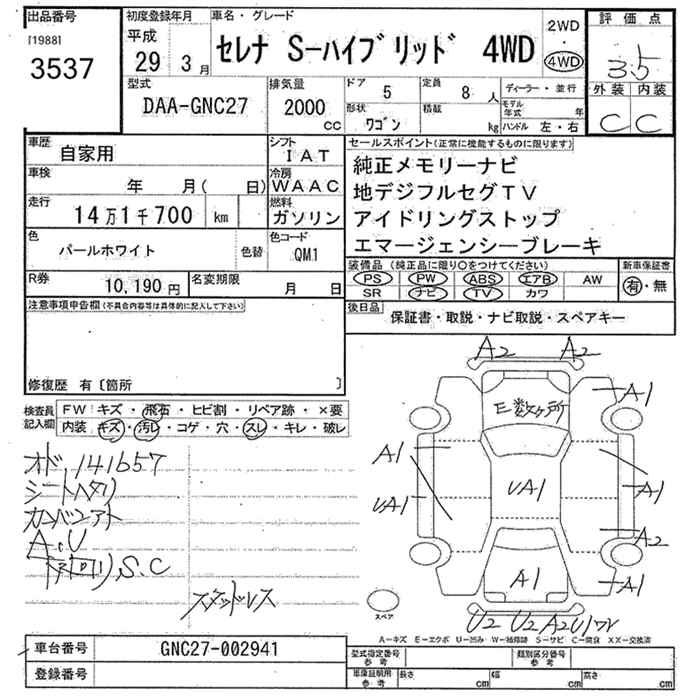 出品番号
[1988]
3537
初度登録年月
平成
29 3月
車名・グレード
セレナ S-ハイブリッド 4WD
2WD
・
4WD
評価点
3.5
外装 内装
C C
型式
DAA-GNC27
排気量
2000
CC
ドア 5
定員 8人
形状 ワゴン
積載 kg
ディーラー・並行
モデル年式 年
ハンドル 左・右
車歴 自家用
車検 年 月( 日)
走行 14万1千700 km
色 パールホワイト 色替
R券 10,190円 名変期限 月 日
シフト IAT
冷房 WAAC
燃料 ガソリン
色コード QM1
セールスポイント(正常に機能するものに限ります)
純正メモリーナビ
地デジフルセグTV
アイドリングストップ
エマージェンシーブレーキ
装備品(純正品に限り○をつけてください) 新車保証書
PS PW ABS エアB AW
SR ナビ TV カワ
有・無
後日品 保証書・取説・ナビ取説・スペアキー
注意事項申告欄(不具合内容等は具体的に記入して下さい)
修復歴 有〔箇所 〕
検査員記入欄
FW キズ・飛石・ヒビ割・リペア跡・×要
内装 キズ・汚レ・コゲ・穴・スレ・キレ・破レ
オド 141657
シートヘタリ
カンバンアト
A.U
S.C
スタッドレス
A2 A2
E数ヶ所
A1
A1
UA1
UA1
A1
A2
A1
A1
U2 U2 A2U1
スペア
A-キズ E-エクボ U-凹み W-補修跡 S-サビ C-腐食 XX-交換済
車台番号 GNC27-002941
登録番号
型式指定番号 参考
類別区分番号 参考
車庫証明用 参考
長さ cm
幅 cm
高さ cm